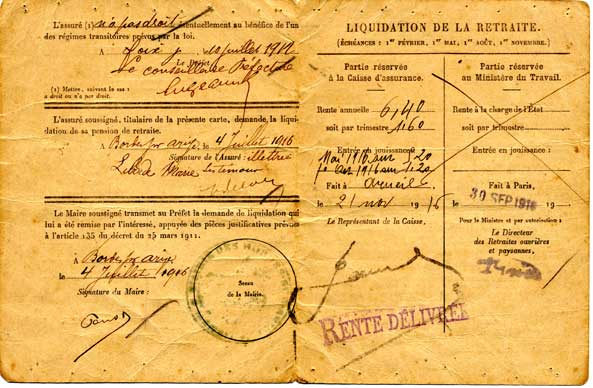 L'assuré (1) n'a pas droit éventuellement au bénéfice de l'un
des régimes transitoires prévus par la loi.
A Foix, le 10 juillet 1912
Le Préfet,
Le conseiller de Préfecture
(1) Mettre, suivant le cas :
a droit ou n'a pas droit.
L'assuré soussigné, titulaire de la présente carte, demande, la liqui-
dation de sa pension de retraite.
A le 4 Juillet 1916
Signature de l'Assuré : illettré
Marie
Le Maire soussigné transmet au Préfet la demande de liquidation qui
lui a été remise par l'intéressé, appuyée des pièces justificatives prévues
à l'article 135 du décret du 25 mars 1911.
A
le 4 Juillet 1916
Signature du Maire :
Sceau
de la Mairie.
LIQUIDATION DE LA RETRAITE.
(ÉCHÉANCES : 1er FÉVRIER, 1er MAI, 1er AOÛT, 1er NOVEMBRE.)
Partie réservée
à la Caisse d'assurance.
Rente annuelle 6,40
soit par trimestre 1,60
Entrée en jouissance :
Fait à
le 21 nov 1916
Le Représentant de la Caisse,
RENTE DÉLIVRÉE
Partie réservée
au Ministère du Travail.
Rente à la charge de l'État
soit par trimestre
Entrée en jouissance :
Fait à Paris,
le 30 SEP 1916
Pour le Ministre et par autorisation :
Le Directeur
des Retraites ouvrières
et paysannes,